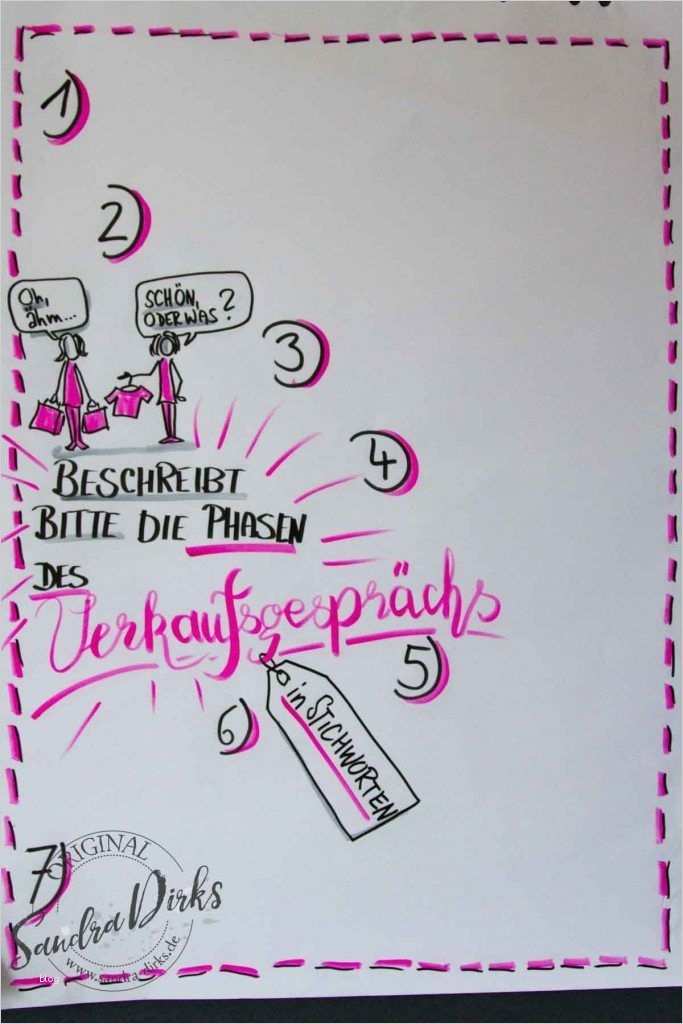 1
2
Oh,
ähm...
SCHÖN,
ODER WAS?
3
4
BESCHREIBT
BITTE DIE PHASEN
DES
Verkaufsgesprächs
5
in STICHWORTEN
6
7
ORIGINAL
Sandra Dirks
www.sandra-dirks.de
blog